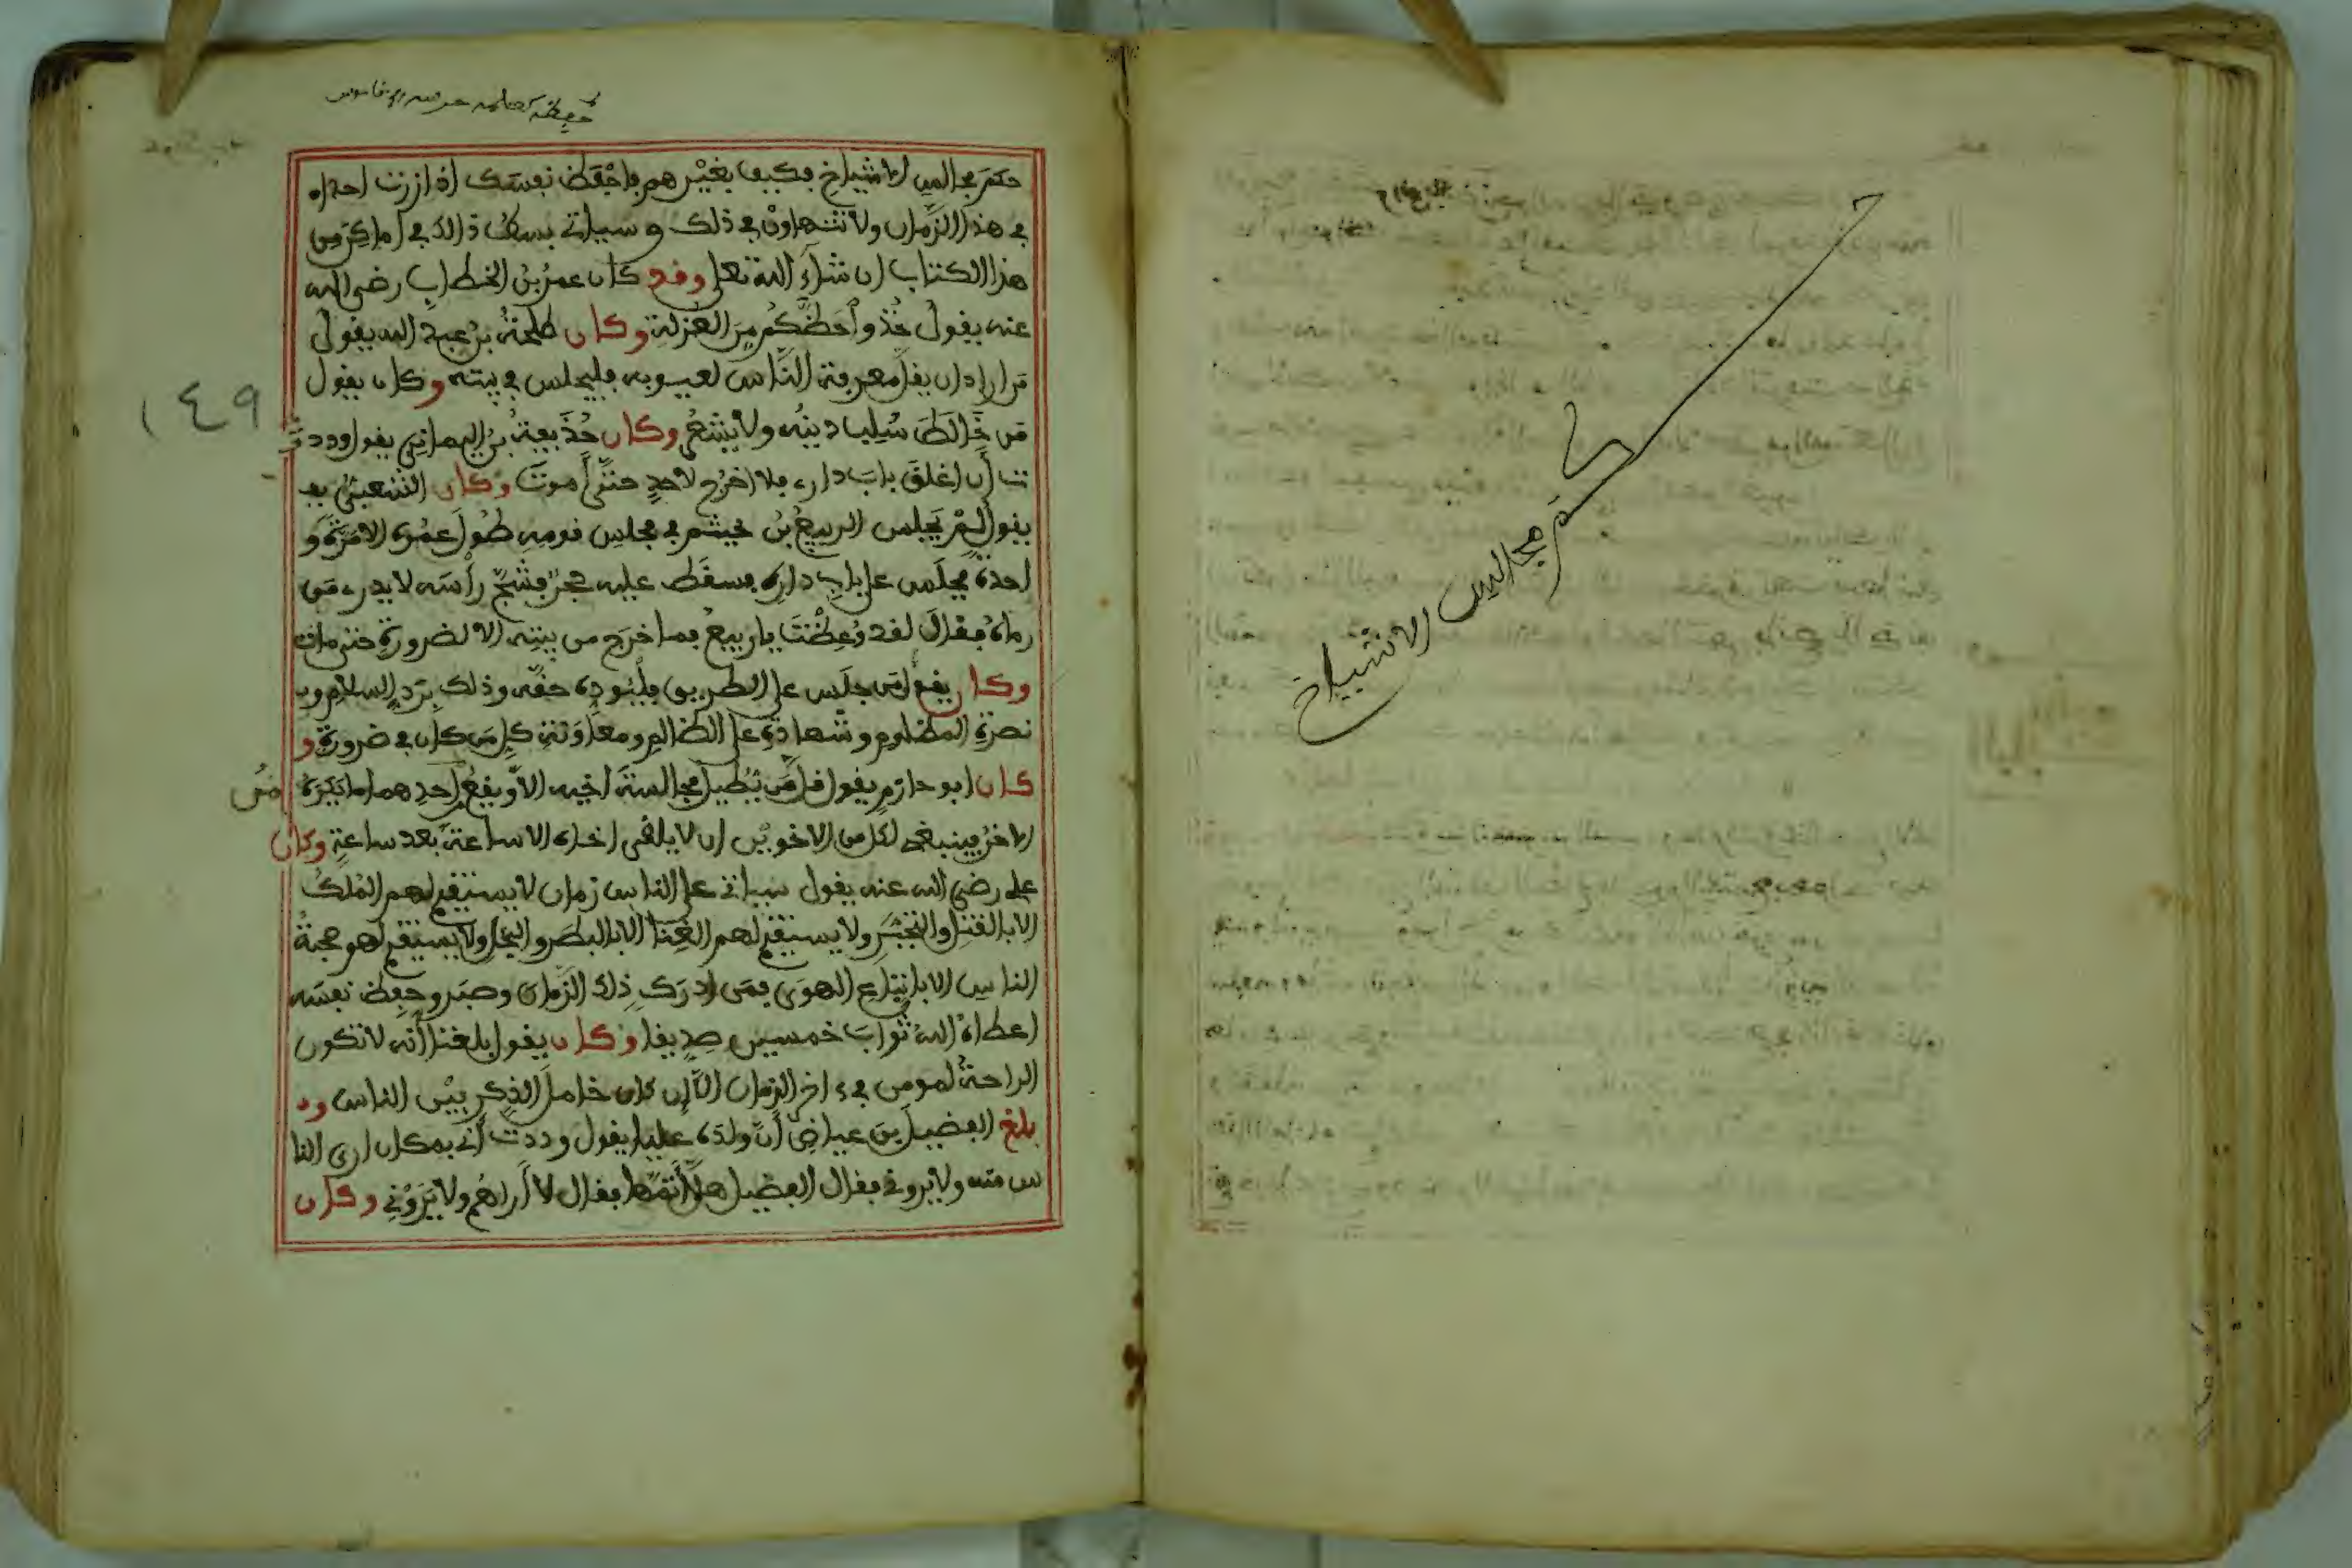 كم مجالس الاشياخ
حكم مجالس الاشياخ فكيف بغيرهم فاحفظ نفسك اذا زرت احدا
في هذا الزمان ولا تتهاون في ذلك وسياتي بسط ذالك في اماكن من
هذا الكتاب ان شاء الله تعلى وقد كان عمر بن الخطاب رضي الله
عنه يقول خذوا حظكم من العزلة وكان طلحة بن عبيد الله يقول
من اراد ان يقل معرفة الناس لعيوبه فليجلس في بيته وكان يقول
من خالط سلب دينه ولا يشعر وكان حذيفة بن اليماني يقول وددت
ت أن اغلق باب داري فلا اخرج لاحد حتى أموت وكان الشعبي يقـ
يقول لم يجلس الربيع بن خيثم في مجلس قومه طول عمره الا مرة و
احدة فجلس على باب داره فسقط عليه حجر فشج رأسه لا يدرى من
رماه فقال لقد وعظت يا ربيع فما خرج من بيته الا لضرورة حتى مات
وكان يقول من جلس على الطريق فليؤده حقه وذلك برد السلام و
نصرة المظلوم وشهادة على الظالم ومعاونة كل من كان في ضرورة و
كان ابو حازم يقول قل من تطيل مجالسة اخيه الا ويقع احدهما ما يكره من
الاخر فينبغي لكل من الاخوين ان لا يلقى اخاه الا ساعة بعد ساعة وكان
علي رضي الله عنه يقول سياتي على الناس زمان لا يستقيم لهم الملك
الا بالقتل والتجبر ولا يستقيم لهم الغنا الا بالبطر والبخل ولا يستقيم لهم صحبة
الناس الا باتباع الهوى فمن ادرك ذلك الزمان وصبر وحفظ نفسه
اعطاه الله ثواب خمسين صديقا وكان يقول بلغنا أنه لا تكون
الراحة لمومن في ءاخر الزمان الا لمن كان خامل الذكر بين الناس و
بلغ الفضيل بن عياض أن ولده عليا يقول وددت أني بمكان ارى النا
س منه ولا يروني فقال الفضيل هلا أتمها فقال لا أراهم ولا يروني وكان
١٤٩